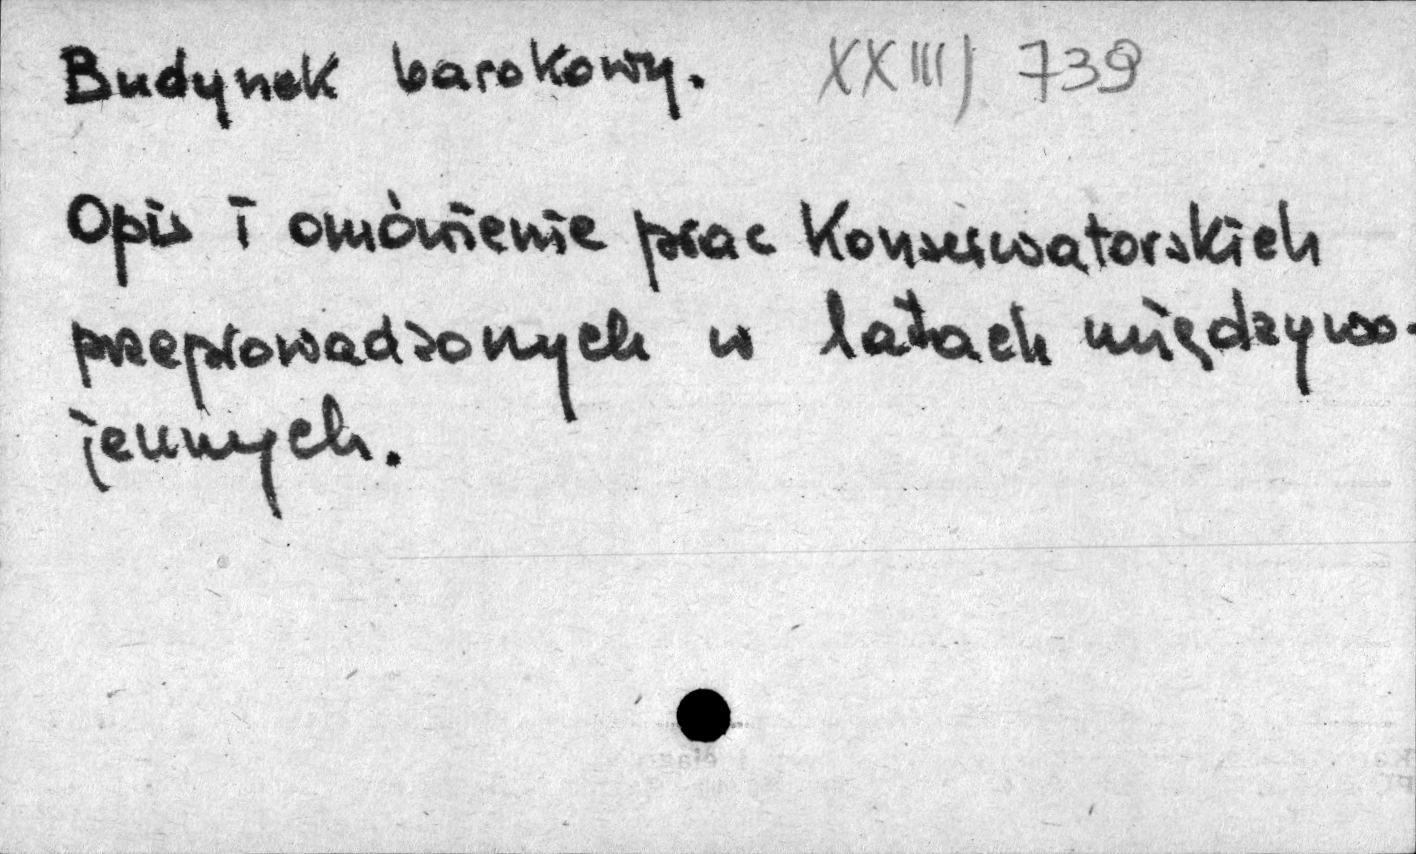 Budynek barokowy. XXIII/739
Opis i omówienie prac Konserwatorskich
przeprowadzonych w latach międzywo-
jennych.